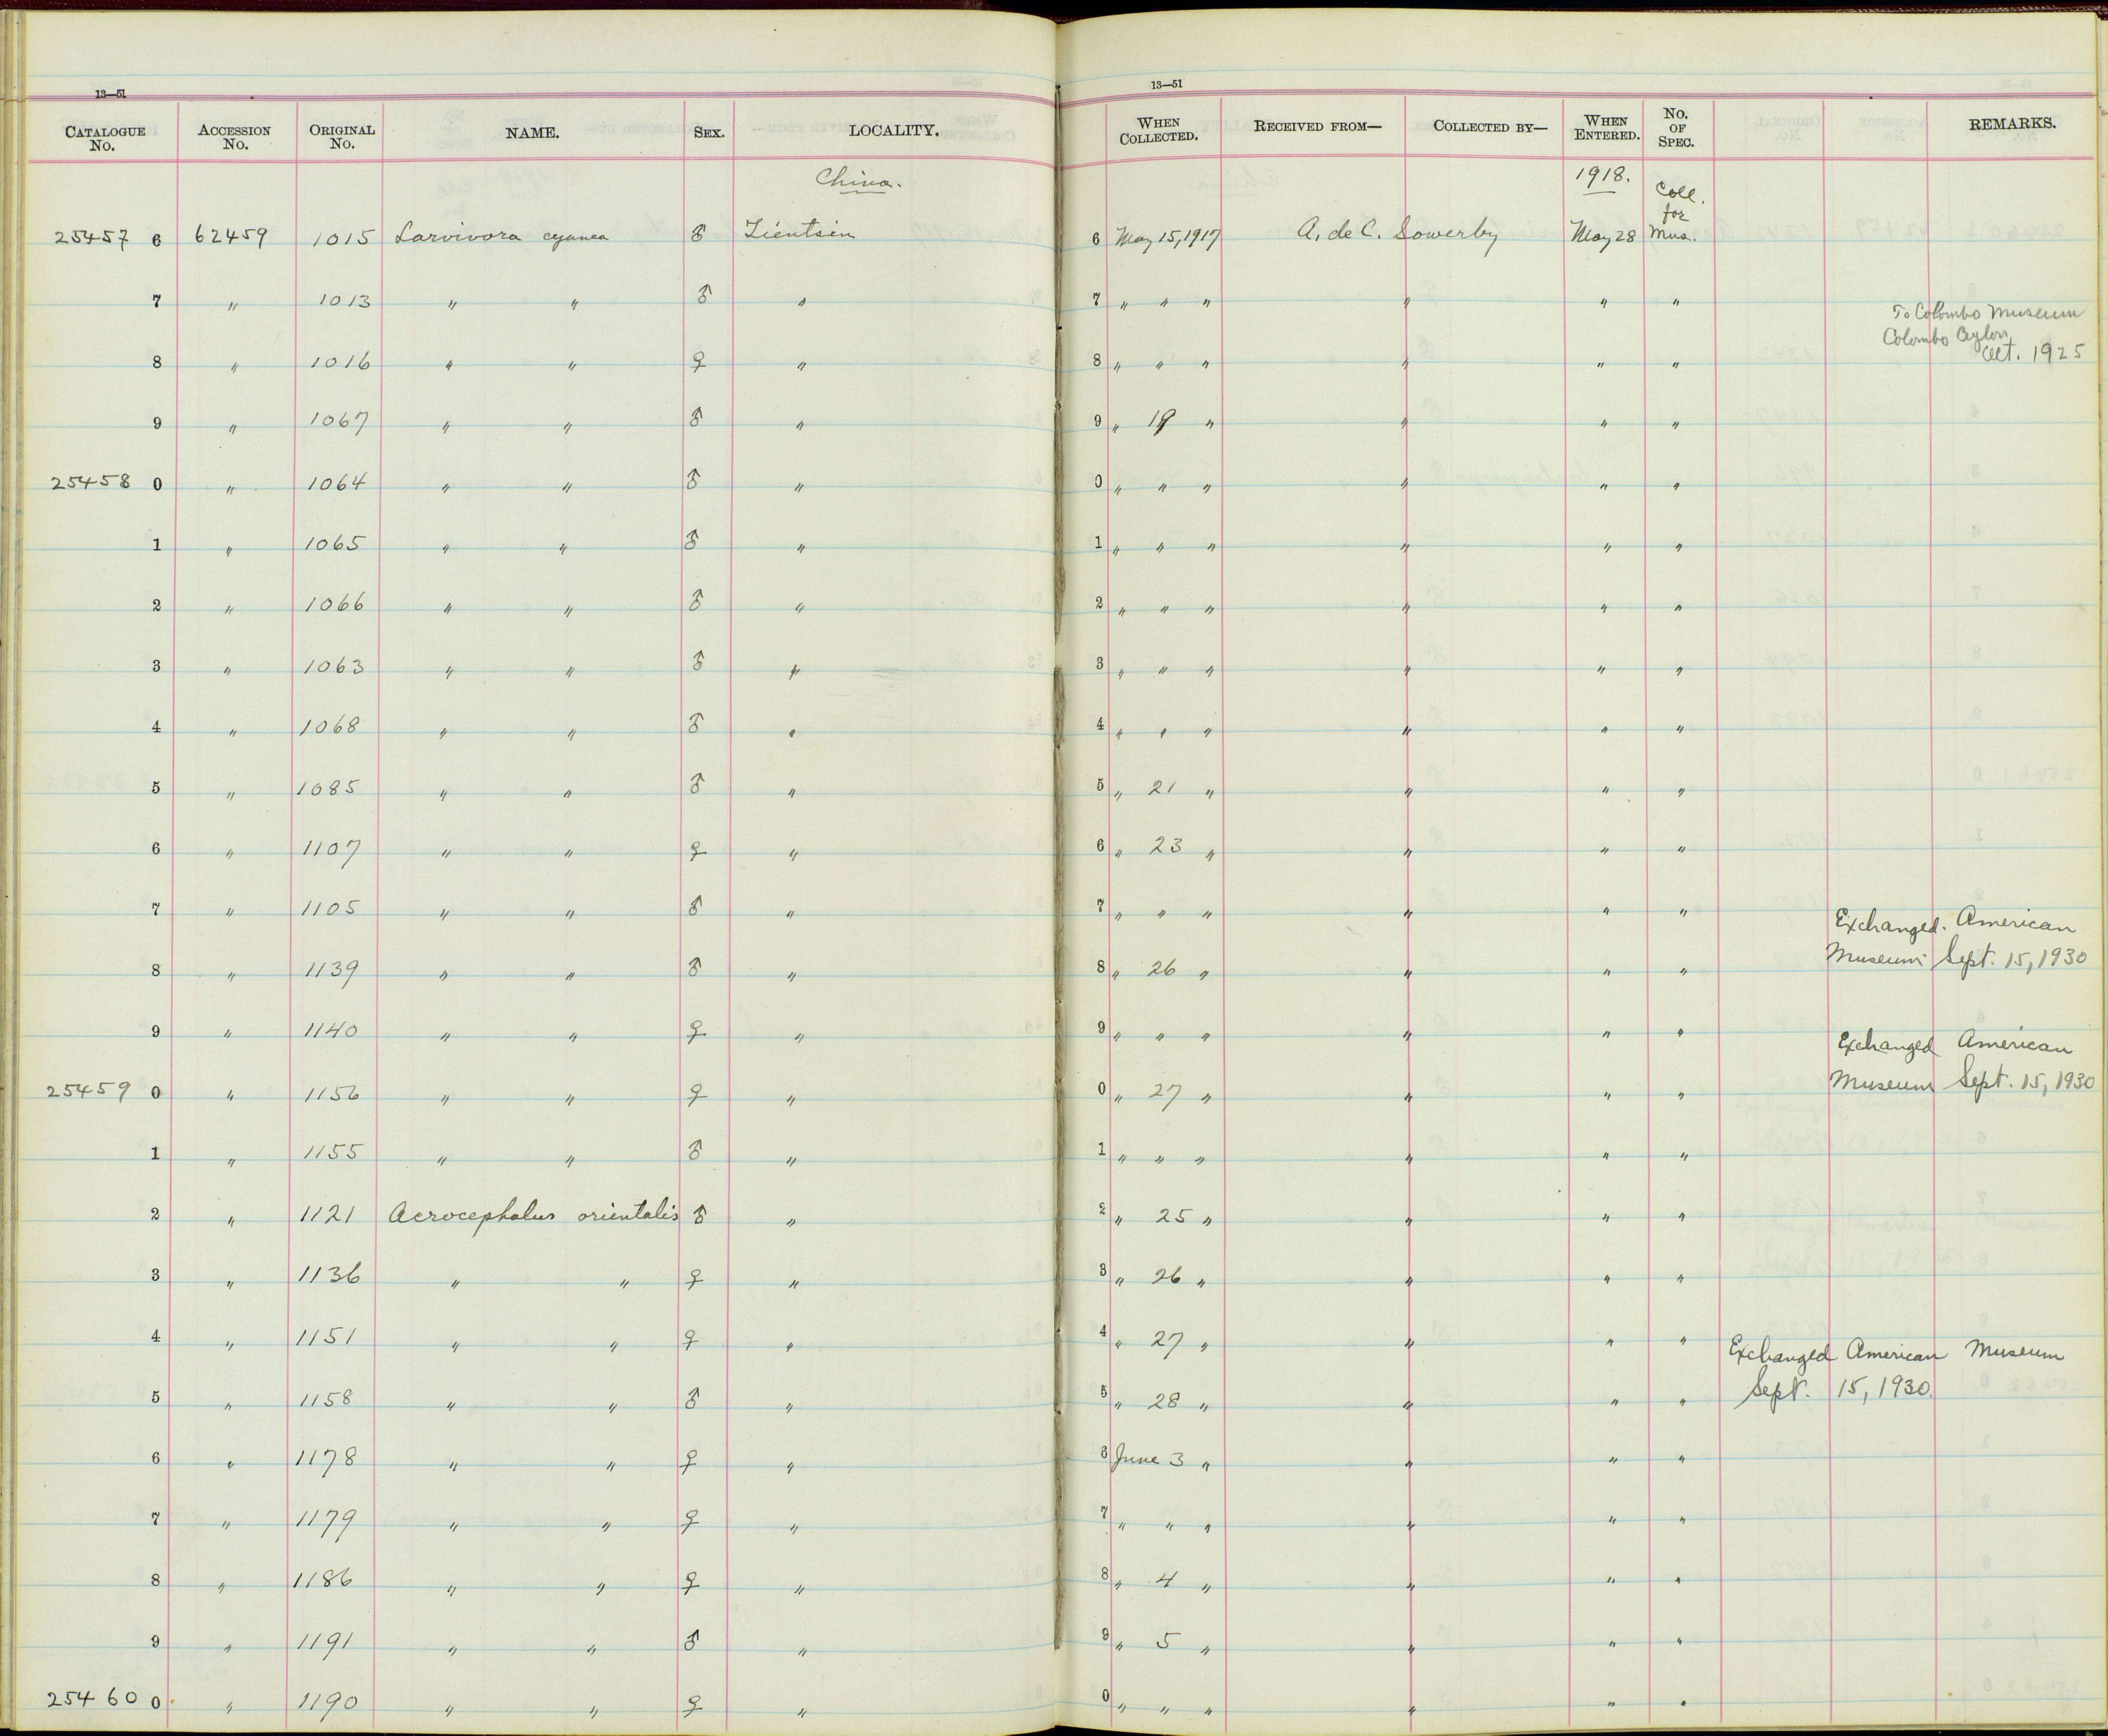 13—51
CATALOGUE No. ACCESSION No. ORIGINAL No. NAME. SEX. LOCALITY.
China.
25457 6 62459 1015 Larvivora cyanea ♂ Tientsin
7 " 1013 " " ♂ "
8 " 1016 " " ♀ "
9 " 1067 " " ♂ "
25458 0 " 1064 " " ♂ "
1 " 1065 " " ♂ "
2 " 1066 " " ♂ "
3 " 1063 " " ♂ "
4 " 1068 " " ♂ "
5 " 1085 " " ♂ "
6 " 1107 " " ♀ "
7 " 1105 " " ♂ "
8 " 1139 " " ♂ "
9 " 1140 " " ♀ "
25459 0 " 1156 " " ♀ "
1 " 1155 " " ♂ "
2 " 1121 Acrocephalus orientalis ♂ "
3 " 1136 " " ♀ "
4 " 1151 " " ♀ "
5 " 1158 " " ♂ "
6 " 1178 " " ♀ "
7 " 1179 " " ♀ "
8 " 1186 " " ♀ "
9 " 1191 " " ♂ "
25460 0 " 1190 " " ♀ "
13—51
WHEN COLLECTED. RECEIVED FROM— COLLECTED BY— WHEN ENTERED. No. OF SPEC. REMARKS.
1918.
Coll.
for
6 May 15, 1917 A. de C. Sowerby May 28 Mus.
7 " " " " " "
To Colombo Museum
Colombo Ceylon
Oct. 1925
8 " " " " " "
9 " 19 " " " "
0 " " " " " "
1 " " " " " "
2 " " " " " "
3 " " " " " "
4 " " " " " "
5 " 21 " " " "
6 " 23 " " " "
7 " " " " " "
Exchanged. American
Museum Sept. 15, 1930
8 " 26 " " " "
9 " " " " " "
Exchanged American
Museum Sept. 15, 1930
0 " 27 " " " "
1 " " " " " "
2 " 25 " " " "
3 " 26 " " " "
4 " 27 " " " "
Exchanged American Museum
Sept. 15, 1930.
5 " 28 " " " "
6 June 3 " " " "
7 " " " " " "
8 " 4 " " " "
9 " 5 " " " "
0 " " " " " "